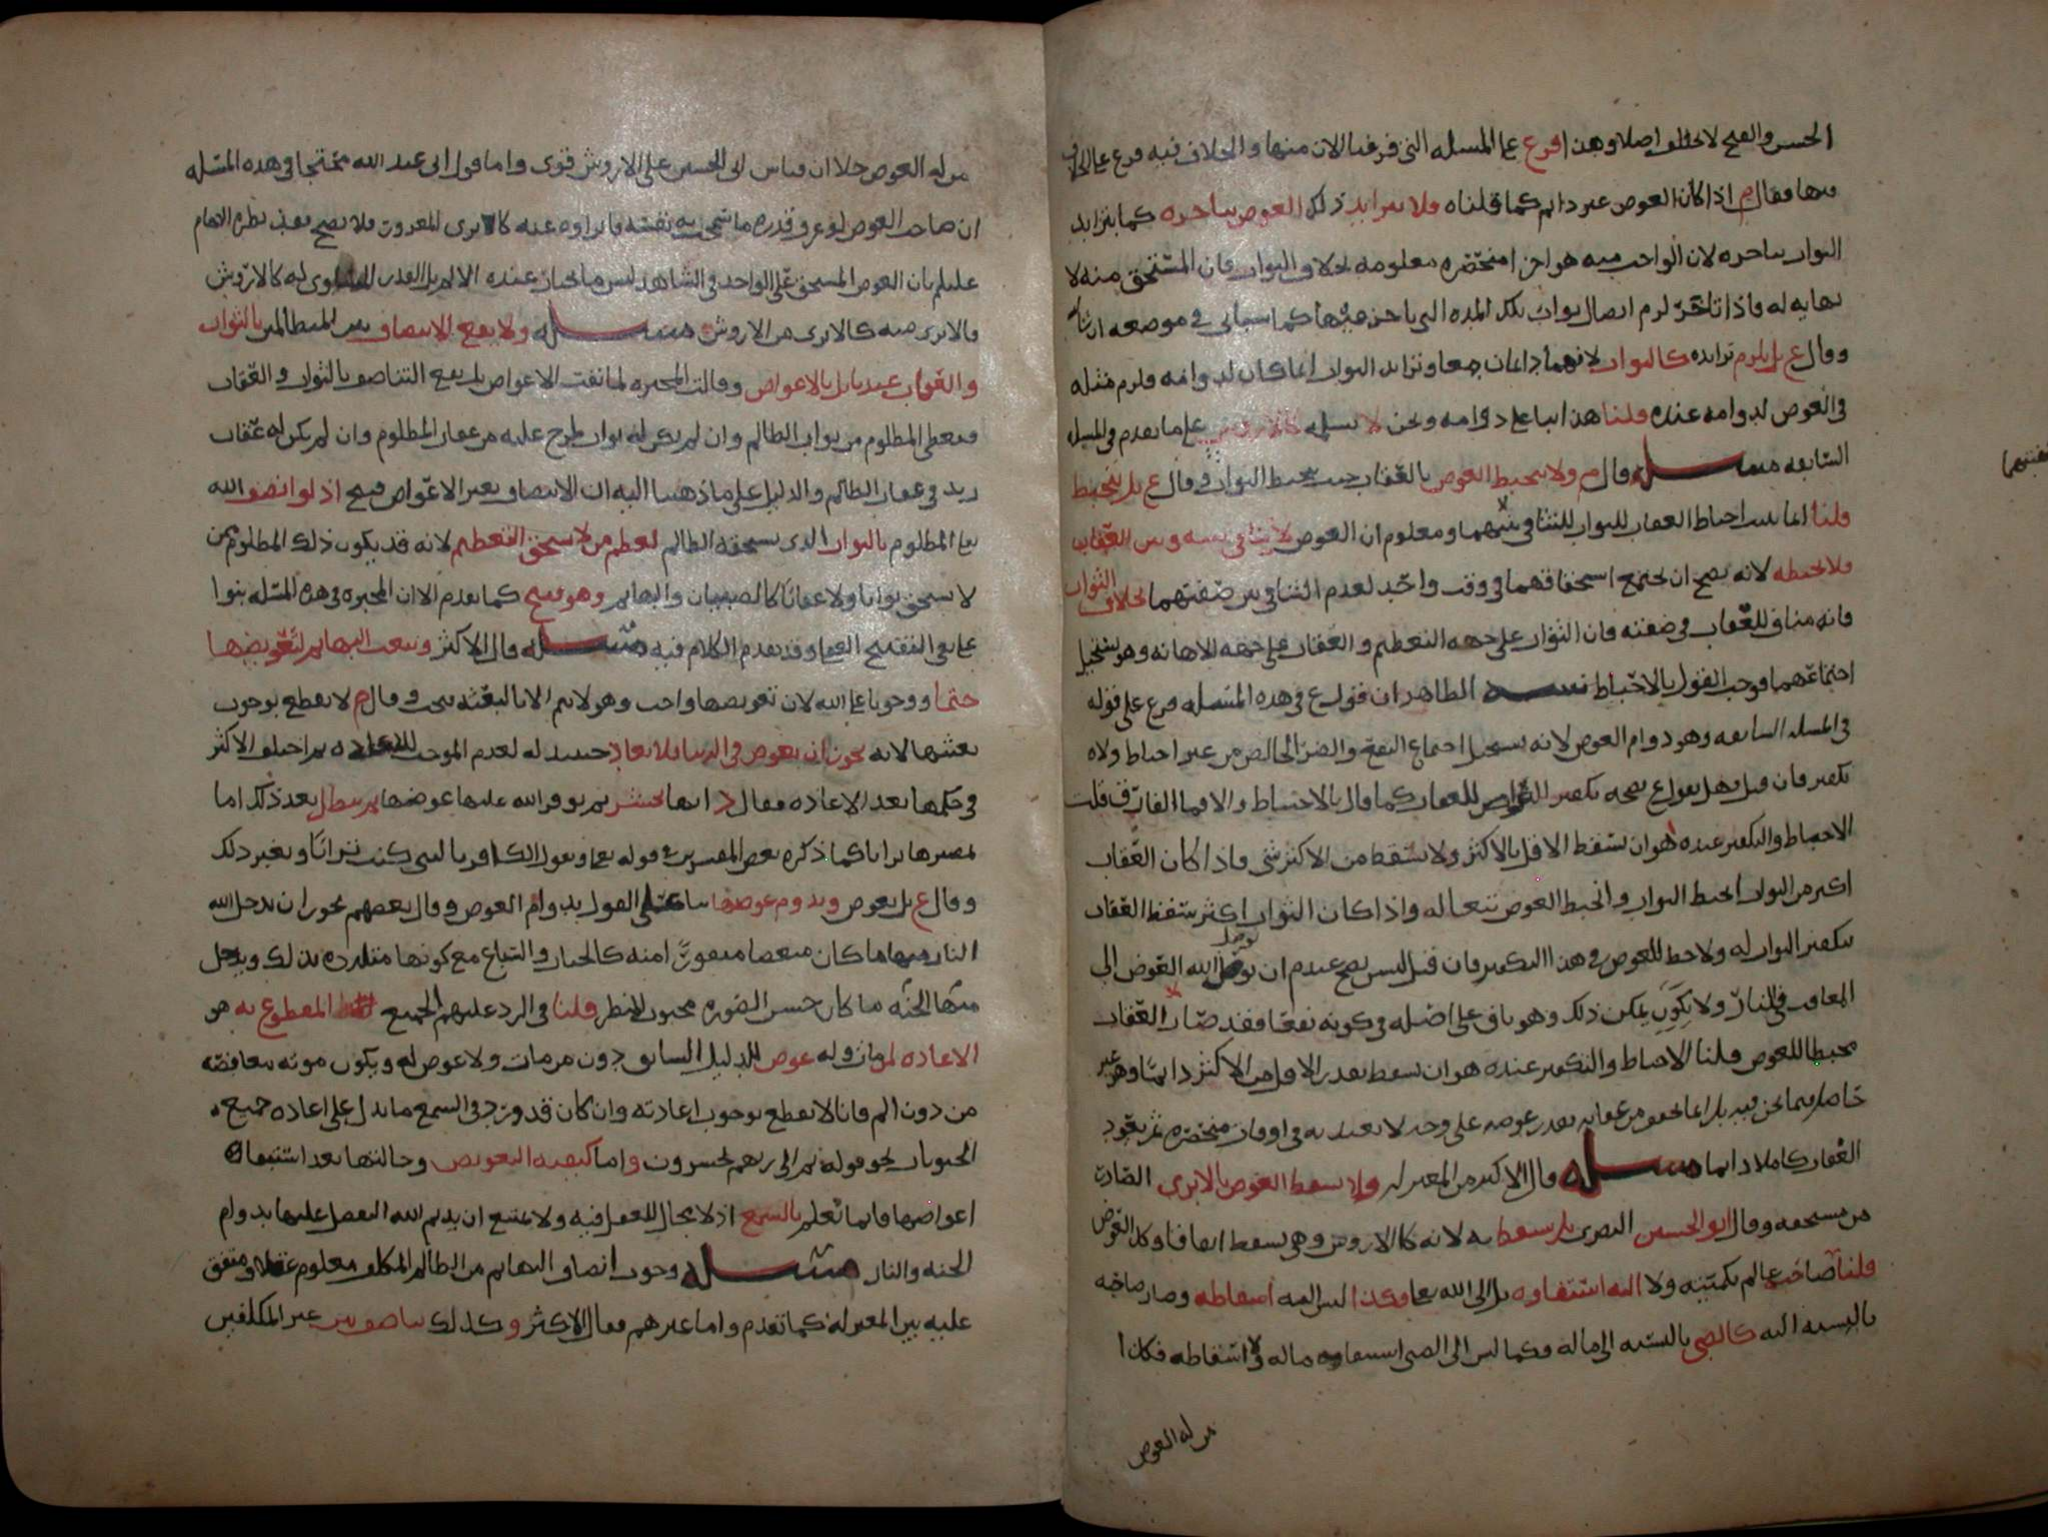 الحسن والقبح لا تختلف اصلا وهذا فرع على المسئله التي فرغنا الان منها والخلاف فيه فرع على الخلاف
فيها فقال م اذا كان العوض غير دائم كما قلناه فلا يتزايد ذلك العوض بتاخره كما يتزايد
الثواب بتاخره لان الواجب فيه هو اجزا منحصره معلومه بخلاف الثواب فان المستحق منه لا
نهايه له فاذا تاخر لزم اتصال ثواب تلك المده التي تاخر عنها كما سياتي في موضعه ان شا الله
وقال ع بل يلزم تزايده كالثواب لانهما دائمان جميعا وتزايد الثواب انما كان لدوامه فلزم مثله
في العوض لدوامه عنده قلنا هذا بنا على دوامه ونحن لا نسلمه كالاروش على ما تقدم في المسئله
السابقه مسئله قال م ولا ينحبط العوض بالعقاب حيث ينحبط الثواب وقال ع بل ينحبط
قلنا انما ثبت احباط العقاب للثواب للتنافي بينهما ومعلوم ان العوض لا ينافي بينه وبين العقاب
فلا يحبطه لانه يصح ان يجتمع استحقاقهما في وقت واحد لعدم التنافي بين صفتهما بخلاف الثواب
فانه مناف للعقاب في صفته فان الثواب على جهه التعظيم والعقاب على جهه الاهانه وهو يستحيل
اجتماعهما فوجب القول بالاحباط تنبيه الظاهر ان قول ع في هذه المسئله فرع على قوله
في المسله السابقه وهو دوام العوض لانه يستحيل اجتماع النفع والضر الخالص من غير احباط ولا
تكفير فان قيل وهل يقول ع بصحه تكفير العوض للعقاب كما قال بالاحباط والا فما الفارق قلت
الاحباط والتكفير عنده هو ان يسقط الاقل بالاكثر ولا يسقط من الاكثر شي فاذا كان العقاب
اكبر من الثواب انحبط الثواب وانحبط العوض تبعا له واذا كان الثواب اكثر سقط العقاب
بتكفير الثواب له ولا حظ للعوض في هذا التكفير فان قيل اليس يصح عندم ان يوصل الله العوض الى
المعاقب في النار ولا يكون يمكن ذلك وهو باق على اصله في كونه نفعا فقد صار العقاب
محبطا للعوض قلنا الاحباط والتكفير عنده هو ان يسقط بقدر الاقل من الاكثر دائما وهو غير
حاصل فيما نحن فيه بل انما يخفف من عقابه بقدر عوضه على وجه لا يعتد به في اوقات منحصره ثم يعود
العقاب كاملا دائما مسئله قال الاكثر من المعتزله ولا يسقط العوض بالابرى الصادر
من مستحقه وقال ابو الحسين البصري بل يسقط به لانه كالاروش وهي يسقط اتفاقا وكذا العوض
قلنا صاحبه عالم بكميته ولا اليه استيفاوه بل الى الله تعالى وكذا ليس اليه اسقاطه وصار صاحبه
بالنسبه اليه كالصبي بالنسبه الى ماله فكما ليس الى الصبي استيفاوه ماله ولا اسقاطه فكذا
من له العوض
من له العوض خلا ان قياس ابي الحسين على الاروش قوي واما قول ابي عبد الله محتجا في هذه المسئله
ان صاحب العوض لو عرف قدره ما سمحت به نفسه فابراوه عنه كلا برى للمغرور فلا يصح بعد نظره الامام
عليلم بان العوض المستحق على الواحد في الشاهد ليس ما يختار عنده الالم بل القدر المساوي له كالاروش
فالابرى منه كالابرى من الاروش مسئله ولا يقع الانتصاف بين المتظالمين بالثواب
والعقاب عندنا بل بالاعواض وقالت المجبره لما نفت الاعواض بل يقع التناصف بالثواب والعقاب
فيعطى المظلوم من ثواب الظالم وان لم يكن له ثواب طرح عليه من عقاب المظلوم وان لم يكن له عقاب
زيد في عقاب الظالم والدليل على ما ذهبنا اليه ان الانتصاف بغير الاعواض قبيح اذ لو انصف الله
تعا المظلوم بالثواب الذي يستحقه الظالم لعظم من لا يستحق التعظيم لانه قد يكون ذلك المظلوم ممن
لا يستحق ثوابا ولا عقابا كالصبيان والبهايم وهو قبيح كما تقدم الا ان المجبره في هذه المسئله بنوا
على نفي التقبيح العقلي وقد تقدم الكلام فيه مسئله قال الاكثر وتبعث البهايم لتعويضها
حتما ووجوبا على الله لان تعويضها واجب وهو لا يتم الا بالبعثه وقال م لا يقطع بوجوب
بعثتها لانه يجوز ان يعوض في الدنيا فلا يعاد حينئذ له لعدم الموجب للاعاده ثم اختلف الاكثر
في حكمها بعد الاعاده فقال د انها تحشر ثم يوفر الله عليها عوضها ثم يبطل بعد ذلك اما
بمصيرها ترابا كما ذكره بعض المفسرين في قوله تعا ويقول الكافر يا ليتني كنت ترابا وبغير ذلك
وقال ع بل يعوض ويدوم عوضها بنا على القول بدوام العوض وقال بعضهم يجوز ان يدخل الله
النار منها ما كان مبغضا ممقوتا منه كالحيات والسباع مع كونها متلذذه بذلك ويدخل
منها الجنه ما كان حسن الصوره محبوب المنظر قلنا في الرد عليهم الجميع المقطوع به هو
الاعاده لمن مات وله عوض للدليل السابق دون من مات ولا عوض له ويكون موته معافصه
من دون الم فانا لا نقطع بوجوب اعادته وان كان قد ورد في السمع ما يدل على اعاده جميع
الحيوانات نحو قوله ثم الى ربهم يحشرون واما كيفيه التعويض وحالتها بعد استيفا
اعواضها فانما تعلم بالسمع اذ لا مجال للعقل فيه ولا يمتنع ان يديم الله التفضل عليها بدوام
الجنه والنار مسئله وجوب انصاف البهايم من الظالم المكلف معلوم عقلا ومتفق
عليه بين المعتزله كما تقدم واما غيرهم فقال الاكثر وكذلك يناصف بين غير المكلفين